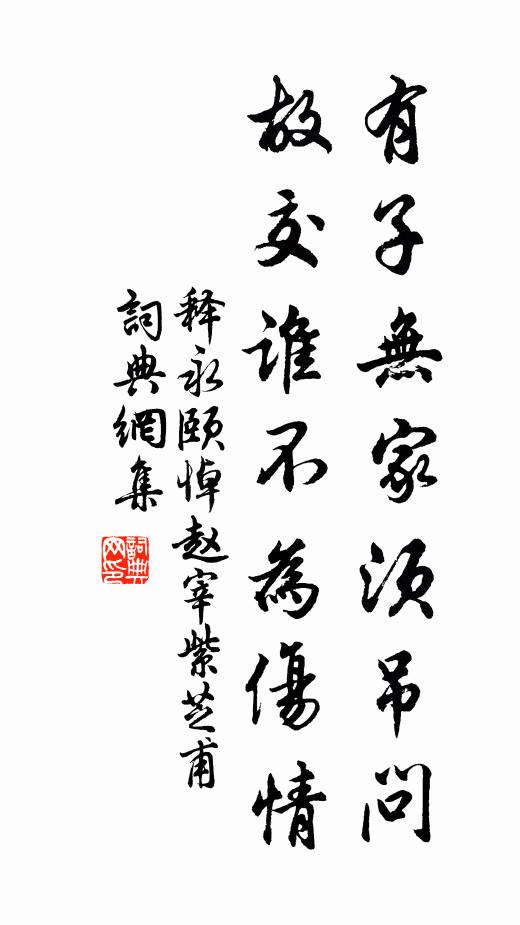 有子無家須吊問
故交誰不為傷情
释永颐悼赵宰紫芝甫
詞典網集
詞典
网印